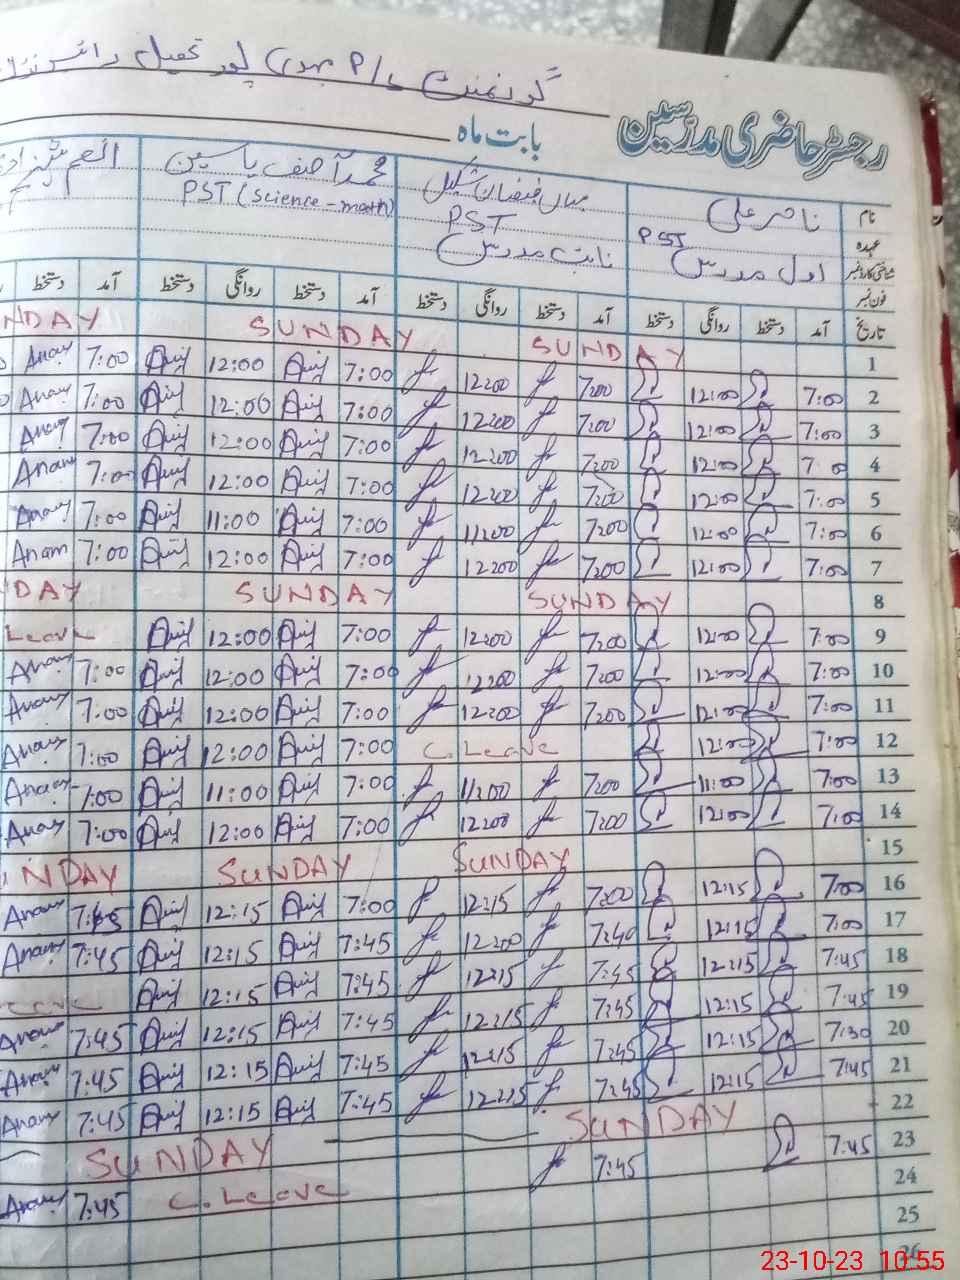 گورنمنٹ P/S مہدی پور تحصیل
رجسٹر حاضری مدرسین
بابت ماہ
نام ناصر علی میاں فیضان شکیل محمد آصف یاسین انعم شہزادی
عہدہ PST PST PST (Science-math)
شناختی کارڈ نمبر اول مدرس نائب مدرس
فون نمبر
تاریخ آمد دستخط روانگی دستخط آمد دستخط روانگی دستخط آمد دستخط روانگی دستخط آمد دستخط
1 SUNDAY SUNDAY NDAY
2 7:00 12:00 7:00 12:00 7:00 Asif 12:00 Asif 7:00 Anam
3 7:00 12:00 7:00 12:00 7:00 Asif 12:00 Asif 7:00 Anam
4 7:00 12:00 7:00 12:00 7:00 Asif 12:00 Asif 7:00 Anam
5 7:00 12:00 7:00 12:00 7:00 Asif 12:00 Asif 7:00 Anam
6 7:00 12:00 7:00 11:00 7:00 Asif 11:00 Asif 7:00 Anam
7 7:00 12:00 7:00 12:00 7:00 Asif 12:00 Asif 7:00 Anam
8 SUNDAY SUNDAY DAY
9 7:00 12:00 7:00 12:00 7:00 Asif 12:00 Asif Leave
10 7:00 12:00 7:00 12:00 7:00 Asif 12:00 Asif 7:00 Anam
11 7:00 12:00 7:00 12:00 7:00 Asif 12:00 Asif 7:00 Anam
12 7:00 12:00 C. Leave 7:00 Asif 12:00 Asif 7:00 Anam
13 7:00 11:00 7:00 11:00 7:00 Asif 11:00 Asif 7:00 Anam
14 7:00 12:00 7:00 12:00 7:00 Asif 12:00 Asif 7:00 Anam
15 SUNDAY SUNDAY NDAY
16 7:00 12:15 7:00 12:15 7:00 Asif 12:15 Asif Anam
17 7:00 12:15 7:40 12:00 7:45 Asif 12:15 Asif 7:45 Anam
18 7:45 12:15 7:45 12:15 7:45 Asif 12:15 Asif Leave
19 7:45 12:15 7:45 12:15 7:45 Asif 12:15 Asif 7:45 Anam
20 7:30 12:15 7:45 12:15 7:45 Asif 12:15 Asif 7:45 Anam
21 7:45 12:15 7:45 12:15 7:45 Asif 12:15 Asif 7:45 Anam
22 SUNDAY SUNDAY
23 7:45 7:45 C. Leave 7:45 Anam
24
25
26
23-10-23 10:55